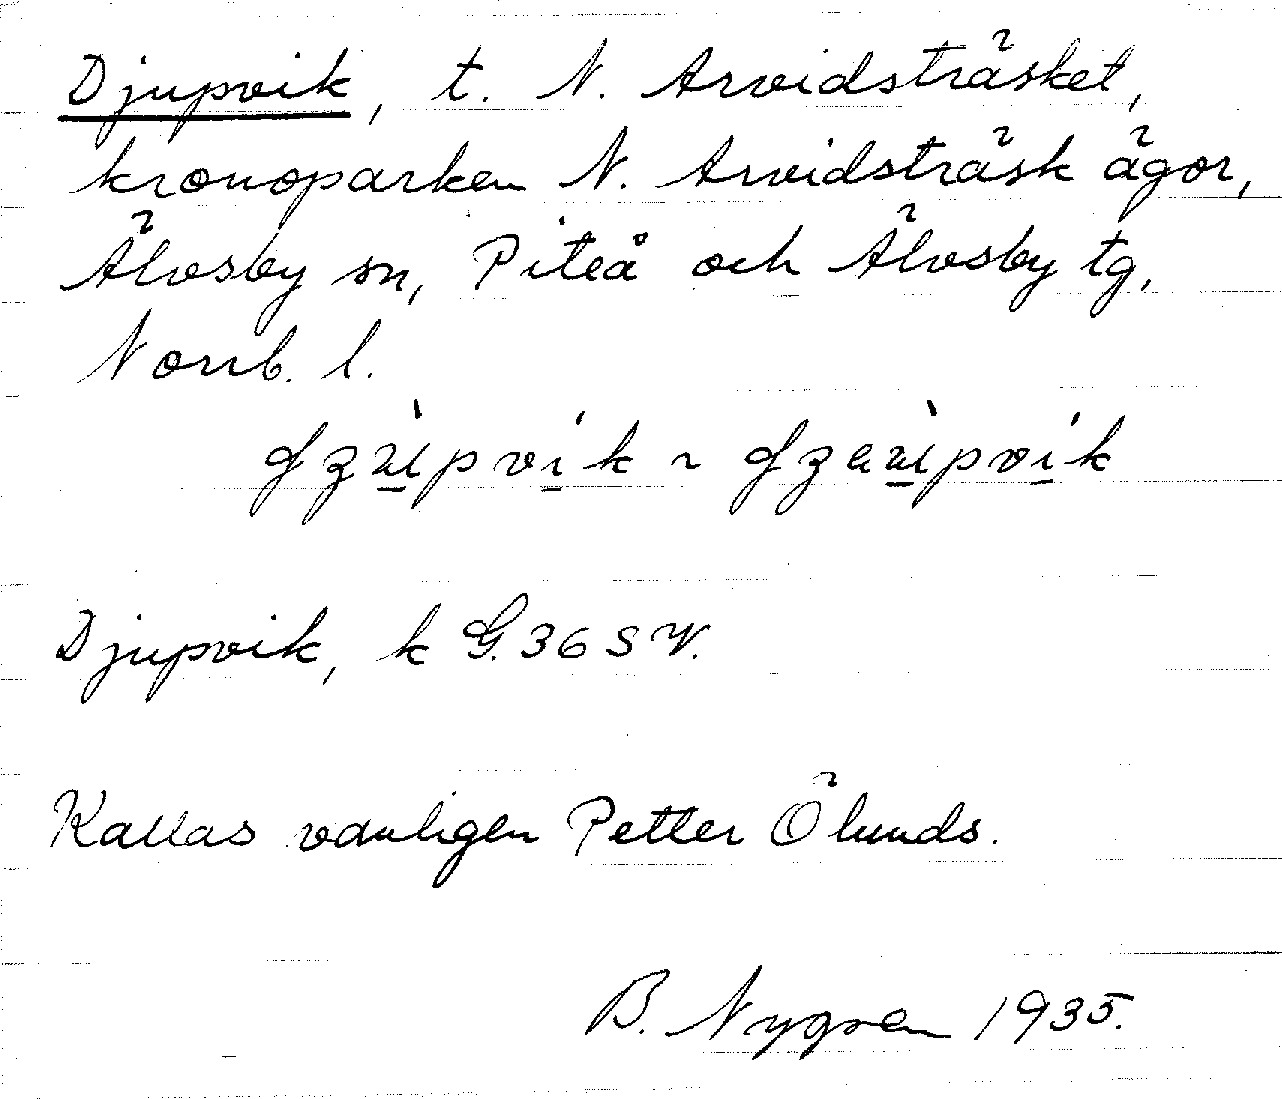 Djupvik, t. N. Arvidsträsket,
kronoparken N. Arvidsträsk ägor,
Älvsby sn, Piteå och Älvsby tg,
Norrb. l.
Djupvik, k G. 36 S V.
Kallas vanligen Petter Ölunds.
B. Nygren 1935.